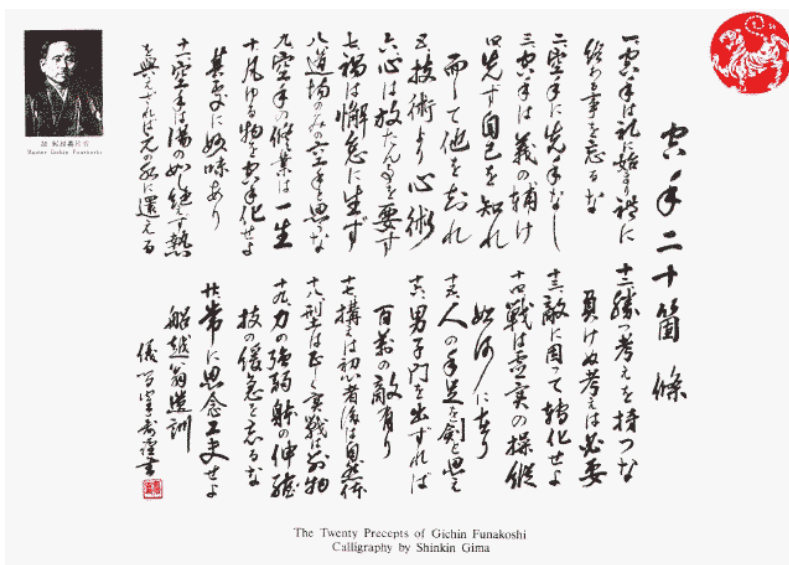 空手二十箇條
一、空手は礼に始まり禮に
終わる事を忘るな
二、空手に先手なし
三、空手は義の輔け
四、先ず自己を知れ
而して他を知れ
五、技術より心術
六、心は放たん事を要す
七、禍は懈怠に生ず
八、道場のみの空手と思うな
九、空手の修業は一生
十、凡ゆる物を空手化せよ
其処に妙味あり
十一、空手は湯の如し絶えず熱
を與えざれば元の水に還える
十二、勝つ考えを持つな
負けぬ考えは必要
十三、敵に因って轉化せよ
十四、戦は虚実の操縦
如何に在り
十五、人の手足を劍と思え
十六、男子門を出ずれば
百萬の敵有り
十七、構えは初心者後は自然体
十八、型は正しく実戦は別物
十九、力の強弱躰の伸縮
技の緩急を忘るな
廿、常に思念工夫せよ
船越翁遺訓
Master Gichin Funakoshi
The Twenty Precepts of Gichin Funakoshi
Calligraphy by Shinkin Gima